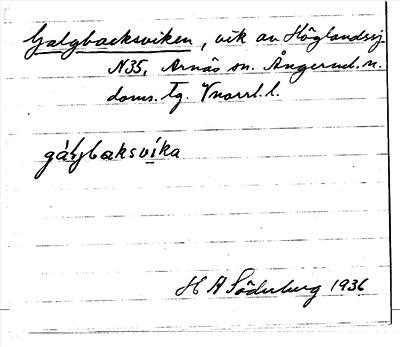 Galgbacksviken, vik av Höglandssj.
N35, Arnäs sn. Ångerml. n.
doms. Tg. Vnorrl. l.
gálgbaksvíka
H A Söderberg 1936